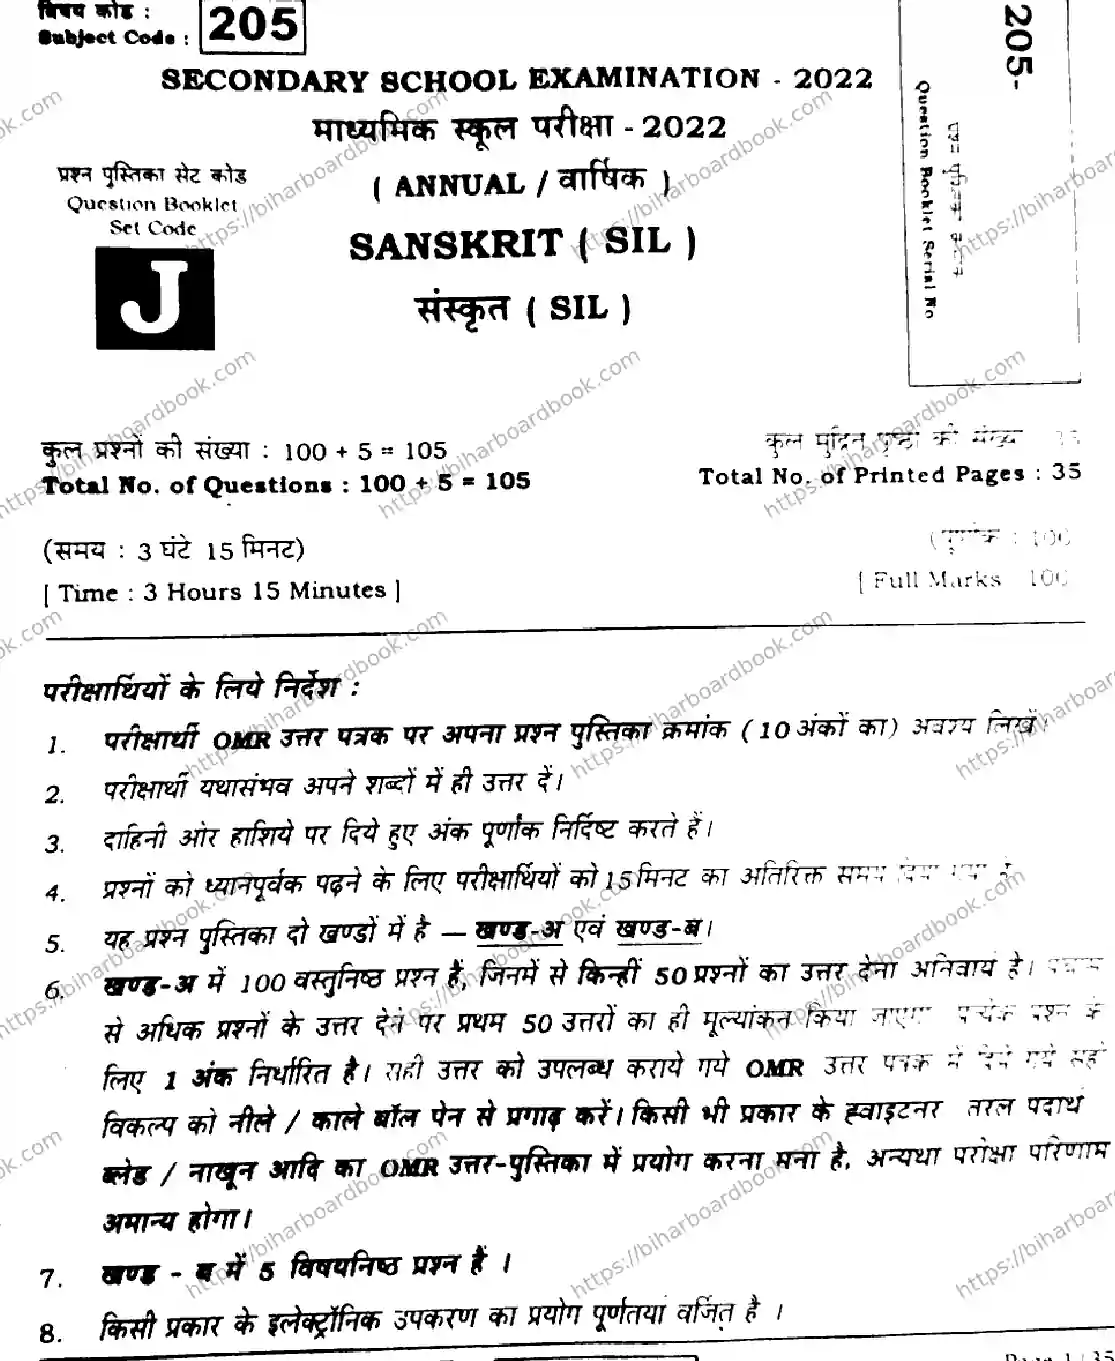 विषय कोड :
Subject Code :
205
205-
SECONDARY SCHOOL EXAMINATION - 2022
माध्यमिक स्कूल परीक्षा - 2022
प्रश्न पुस्तिका सेट कोड
Question Booklet
Set Code
J
( ANNUAL / वार्षिक )
SANSKRIT ( SIL )
संस्कृत ( SIL )
Question Booklet Serial No
कुल प्रश्नों की संख्या : 100 + 5 = 105
Total No. of Questions : 100 + 5 = 105
कुल मुद्रित पृष्ठों की संख्या : 35
Total No. of Printed Pages : 35
(समय : 3 घंटे 15 मिनट)
[ Time : 3 Hours 15 Minutes ]
(पूर्णांक : 100
[ Full Marks 100
परीक्षार्थियों के लिये निर्देश :
1. परीक्षार्थी OMR उत्तर पत्रक पर अपना प्रश्न पुस्तिका क्रमांक ( 10 अंकों का) अवश्य लिखें।
2. परीक्षार्थी यथासंभव अपने शब्दों में ही उत्तर दें।
3. दाहिनी ओर हाशिये पर दिये हुए अंक पूर्णांक निर्दिष्ट करते हैं।
4. प्रश्नों को ध्यानपूर्वक पढ़ने के लिए परीक्षार्थियों को 15 मिनट का अतिरिक्त समय दिया गया है
5. यह प्रश्न पुस्तिका दो खण्डों में है — खण्ड-अ एवं खण्ड-ब।
6. खण्ड-अ में 100 वस्तुनिष्ठ प्रश्न हैं, जिनमें से किन्हीं 50 प्रश्नों का उत्तर देना अनिवार्य है। पचास
से अधिक प्रश्नों के उत्तर देने पर प्रथम 50 उत्तरों का ही मूल्यांकन किया जाएगा प्रत्येक प्रश्न के
लिए 1 अंक निर्धारित है। सही उत्तर को उपलब्ध कराये गये OMR उत्तर पत्रक में दिये गये सही
विकल्प को नीले / काले बॉल पेन से प्रगाढ़ करें। किसी भी प्रकार के ह्वाइटनर तरल पदार्थ
ब्लेड / नाखून आदि का OMR उत्तर-पुस्तिका में प्रयोग करना मना है, अन्यथा परीक्षा परिणाम
अमान्य होगा।
7. खण्ड - ब में 5 विषयनिष्ठ प्रश्न हैं ।
8. किसी प्रकार के इलेक्ट्रॉनिक उपकरण का प्रयोग पूर्णतया वर्जित है ।
Page 1 / 35
https://biharboardbook.com